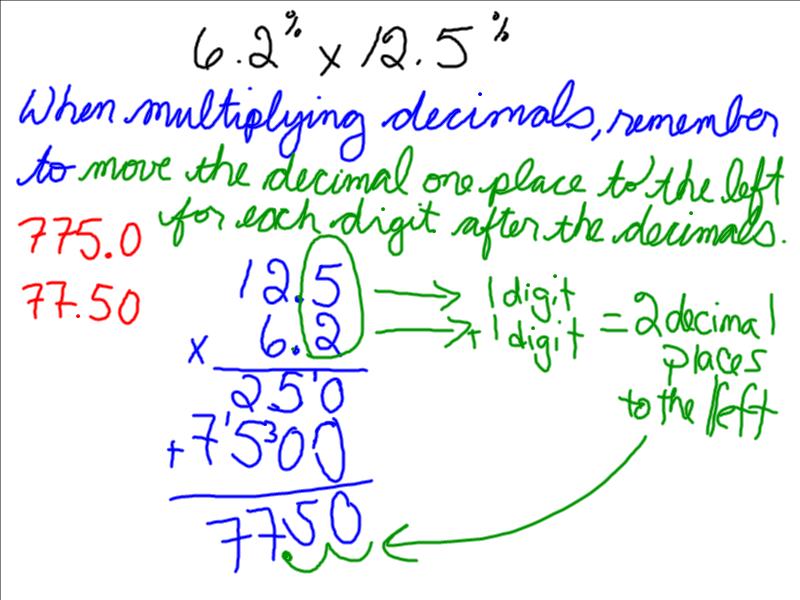 6.2% x 12.5%
When multiplying decimals, remember
to move the decimal one place to the left
for each digit after the decimals.
775.0
77.50
12.5 → 1 digit
x 6.2 → + 1 digit
= 2 decimal
places
to the left
25¹0
+ 7¹5³00
7750